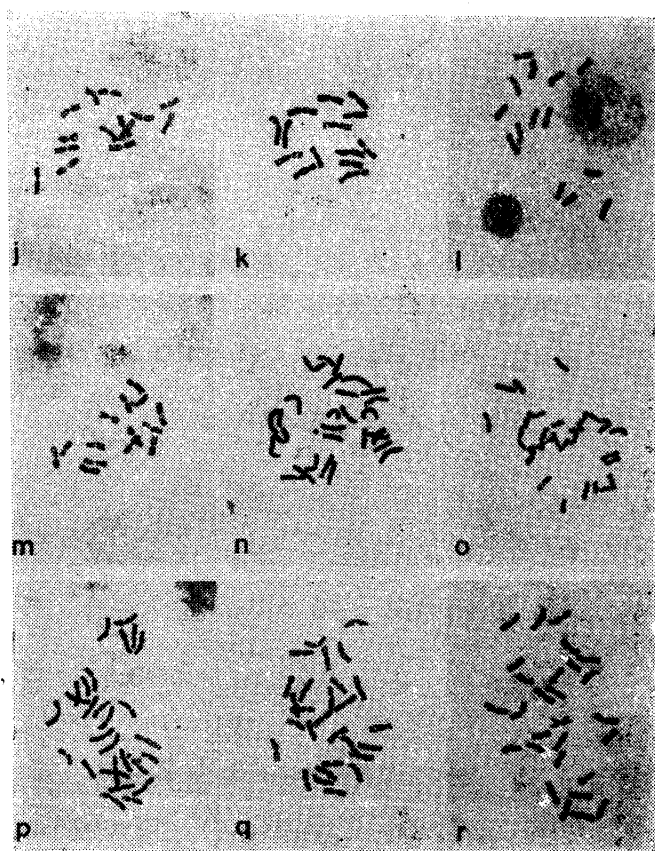 j k l
m n o
p q r